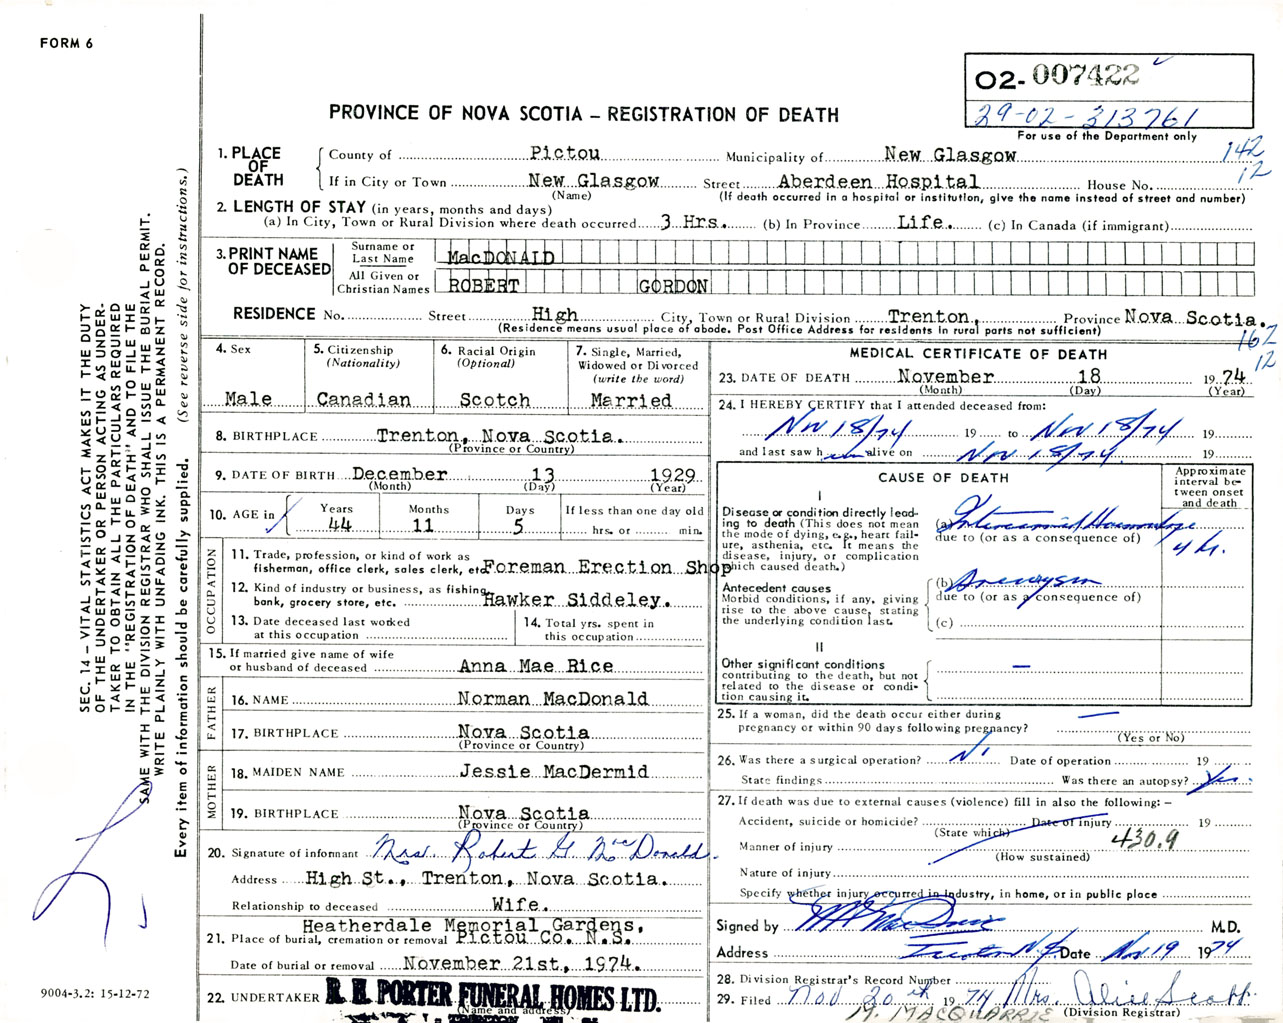 FORM 6
O2-007422
29-02-313761
For use of the Department only
PROVINCE OF NOVA SCOTIA – REGISTRATION OF DEATH
142
12
1. PLACE OF DEATH
County of Pictou Municipality of New Glasgow
If in City or Town New Glasgow Street Aberdeen Hospital House No.
(Name) (If death occurred in a hospital or institution, give the name instead of street and number)
2. LENGTH OF STAY (in years, months and days)
(a) In City, Town or Rural Division where death occurred 3 Hrs. (b) In Province Life. (c) In Canada (if immigrant)
3. PRINT NAME OF DECEASED
Surname or Last Name MacDONALD
All Given or Christian Names ROBERT GORDON
RESIDENCE No. Street High City, Town or Rural Division Trenton, Province Nova Scotia.
(Residence means usual place of abode. Post Office Address for residents in rural parts not sufficient)
162
12
4. Sex
Male
5. Citizenship
(Nationality)
Canadian
6. Racial Origin
(Optional)
Scotch
7. Single, Married,
Widowed or Divorced
(write the word)
Married
8. BIRTHPLACE Trenton, Nova Scotia.
(Province or Country)
9. DATE OF BIRTH December 13 1929
(Month) (Day) (Year)
10. AGE in
Years Months Days If less than one day old
44 11 5 hrs. or min.
OCCUPATION
11. Trade, profession, or kind of work as
fisherman, office clerk, sales clerk, etc. Foreman Erection Shop
12. Kind of industry or business, as fishing,
bank, grocery store, etc. Hawker Siddeley.
13. Date deceased last worked
at this occupation
14. Total yrs. spent in
this occupation
15. If married give name of wife
or husband of deceased Anna Mae Rice
FATHER
16. NAME Norman MacDonald
17. BIRTHPLACE Nova Scotia
(Province or Country)
MOTHER
18. MAIDEN NAME Jessie MacDermid
19. BIRTHPLACE Nova Scotia
(Province or Country)
20. Signature of informant Mrs. Robert G McDonald.
Address High St., Trenton, Nova Scotia.
Relationship to deceased Wife.
Heatherdale Memorial Gardens,
21. Place of burial, cremation or removal Pictou Co. N.S.
Date of burial or removal November 21st, 1974.
22. UNDERTAKER R. H. PORTER FUNERAL HOMES LTD.
(Name and address)
MEDICAL CERTIFICATE OF DEATH
23. DATE OF DEATH November 18 1974
(Month) (Day) (Year)
24. I HEREBY CERTIFY that I attended deceased from:
Nov 18/74 19 to Nov 18/74 19
and last saw him alive on Nov 18/74 19
CAUSE OF DEATH
Approximate
interval be-
tween onset
and death
I
Disease or condition directly lead-
ing to death (This does not mean
the mode of dying, e.g., heart fail-
ure, asthenia, etc. It means the
disease, injury, or complication
which caused death.)
(a) Intracranial Haemorrhage
due to (or as a consequence of)
4 hr.
Antecedent causes
Morbid conditions, if any, giving
rise to the above cause, stating
the underlying condition last.
(b) Aneurysm
due to (or as a consequence of)
(c)
II
Other significant conditions
contributing to the death, but not
related to the disease or condi-
tion causing it.
—
25. If a woman, did the death occur either during
pregnancy or within 90 days following pregnancy? —
(Yes or No)
26. Was there a surgical operation? No Date of operation 19
State findings Was there an autopsy? Yes
27. If death was due to external causes (violence) fill in also the following: –
Accident, suicide or homicide? Date of injury 19
(State which)
Manner of injury 430.9
(How sustained)
Nature of injury
Specify whether injury occurred in Industry, in home, or in public place
Signed by M.D.
Address Trenton N.S. Date Nov 19 1974
28. Division Registrar's Record Number
29. Filed Nov 20th 1974 Mrs. Alice Scott
(Division Registrar)
M. MACQUARRIE
SEC. 14 – VITAL STATISTICS ACT MAKES IT THE DUTY
OF THE UNDERTAKER OR PERSON ACTING AS UNDER-
TAKER TO OBTAIN ALL THE PARTICULARS REQUIRED
IN THE "REGISTRATION OF DEATH" AND TO FILE THE
SAME WITH THE DIVISION REGISTRAR WHO SHALL ISSUE THE BURIAL PERMIT.
WRITE PLAINLY WITH UNFADING INK. THIS IS A PERMANENT RECORD.
Every item of information should be carefully supplied. (See reverse side for instructions.)
9004-3.2: 15-12-72